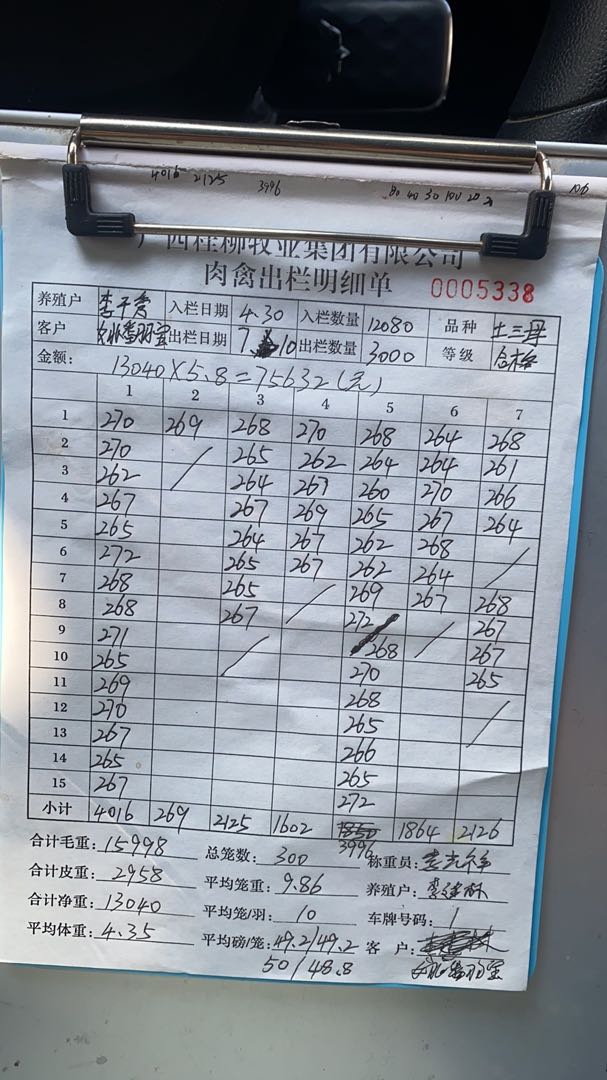 4016 2125 3996 80 40 30 100 20
广西桂柳牧业集团有限公司
肉禽出栏明细单 0005338
养殖户 入栏日期 4.30 入栏数量 12080 品种
客户 出栏日期 7. 10 出栏数量 3000 等级 合格
金额: 13040×5.8=75632(元)
1 2 3 4 5 6 7
1 270 269 268 270 268 264 268
2 270 265 262 264 264 261
3 262 264 267 260 270 266
4 267 267 269 265 267 264
5 265 264 267 262 268
6 272 265 267 262 264
7 268 265 269 267 268
8 268 267 272 267
9 271 268 267
10 265 270 265
11 269 268
12 270 265
13 267 266
14 265 265
15 267 272
小计 4016 269 2125 1602 1850 1864 2126
3996
合计毛重: 15998 总笼数: 300 称重员:
合计皮重: 2958 平均笼重: 9.86 养殖户:
合计净重: 13040 平均笼/羽: 10 车牌号码: 1
平均体重: 4.35 平均磅/笼: 49.2/49.2 客 户:
50/48.8